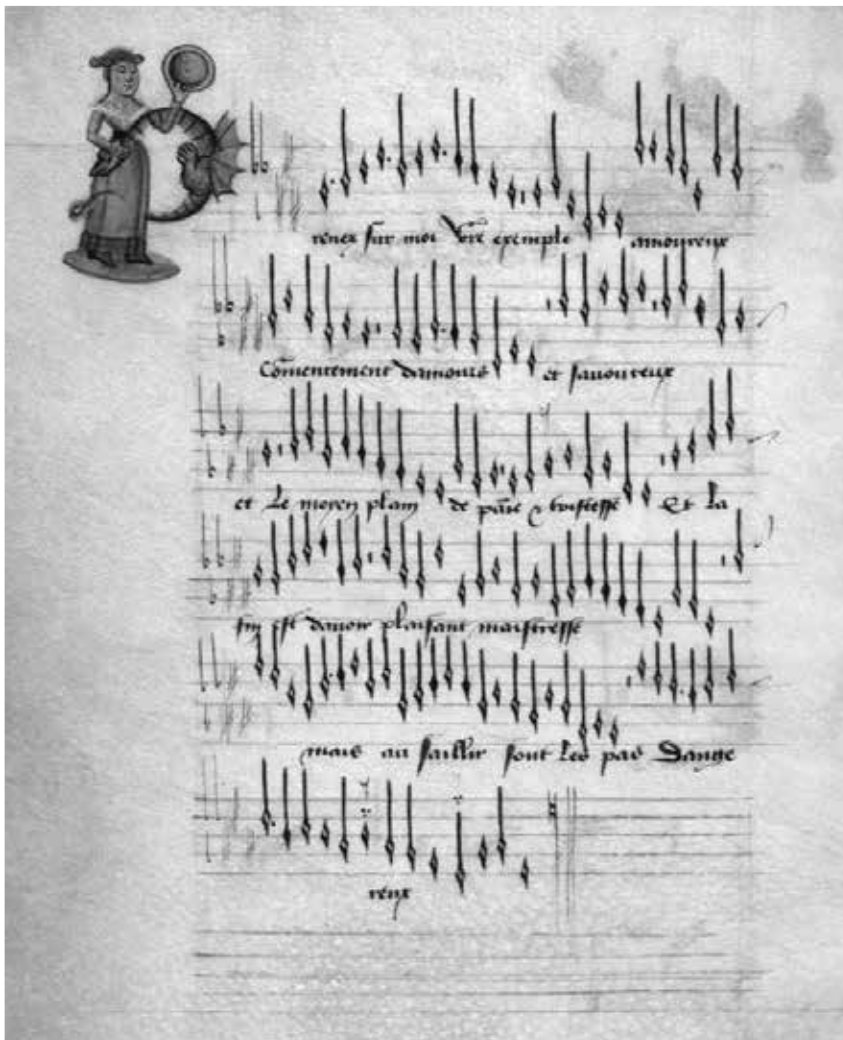 renez sur moi vostre exemple amoureux
Comencement damours est savoureux
et le moyen plain de paine & tristesse Et la
fin est davoir plaisant maistresse
mais au saillir sont les pas dange
reux